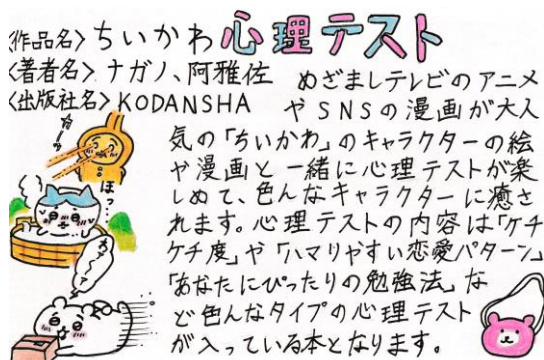 〈作品名〉ちいかわ心理テスト
〈著者名〉ナガノ、阿雅佐
〈出版社名〉KODANSHA
めざましテレビのアニメ
やSNSの漫画が大人
気の「ちいかわ」のキャラクターの絵
や漫画と一緒に心理テストが楽
しめて、色んなキャラクターに癒さ
れます。心理テストの内容は「ケチ
ケチ度」や「ハマりやすい恋愛パターン」
「あなたにぴったりの勉強法」な
ど色んなタイプの心理テスト
が入っている本となります。
ほっ